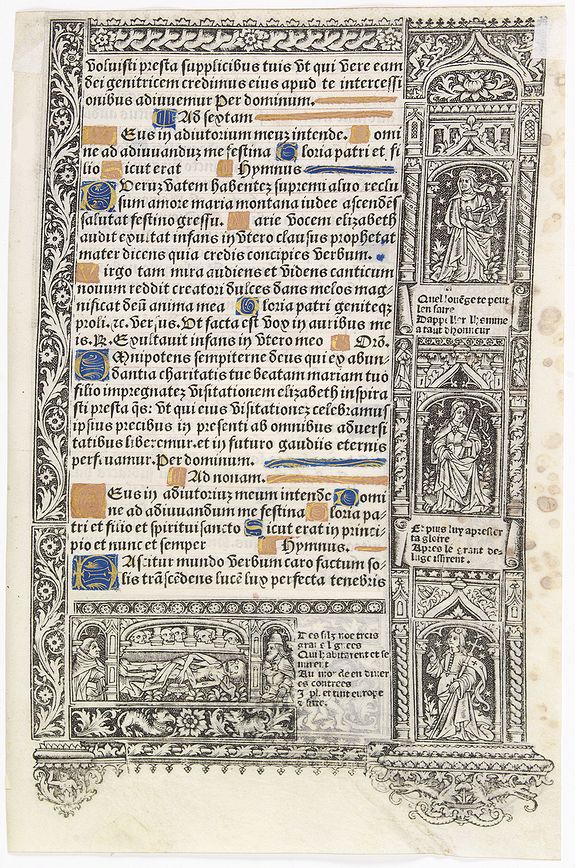 voluisti presta supplicibus tuis vt qui vere eam
dei genitricem credimus eius apud te intercessi
onibus adiuuemur Per dominum.
Ad sextam
Eus in adiutorium meuz intende. omi
ne ad adiuuanduz me festina loria patri et fi
lio icut erat Hymnus
Veruz vatem habentez supremi aluo reclu
sum amore maria montana iudee ascendēs
salutat festino gressu. arie vocem elizabeth
audit exultat infans in vtero clausus prophetat
mater dicens quia credis concipies verbum.
irgo tam mira audiens et videns canticum
nouum reddit creatori dulces dans melos mag-
nificat deū anima mea loria patri geniteqz
proli. zc. versus. Vt facta est vox in auribus me
is. R. Exultauit infans in vtero meo Orō.
Mnipotens sempiterne deus qui ex abun-
dantia charitatis tue beatam mariam tuo
filio impregnatez visitationem elizabeth inspira
sti presta qs: vt qui eius visitationez celebramus
ipsius precibus in presenti ab omnibus aduersi
tatibus liberemur. et in futuro gaudiis eternis
perfruamur. Per dominum.
Ad nonam.
Eus in adiutoriuz meum intende omi
ne ad adiuuandum me festina loria pa-
tri et filio et spiritui sancto icut erat in princi-
pio et nunc et semper Hymnus.
Ascitur mundo verbum caro factum so-
lis trāscēdens lucē lux perfecta tenebris
Quel louēge te peut
len faire
a taut dhonneur
Et puis luy apresser
ta gloire
Apres le grant de-
luge issirent.
Des filz noe trois
Qui habitarent et se
mirent
Au mōde en diuer
es contrees